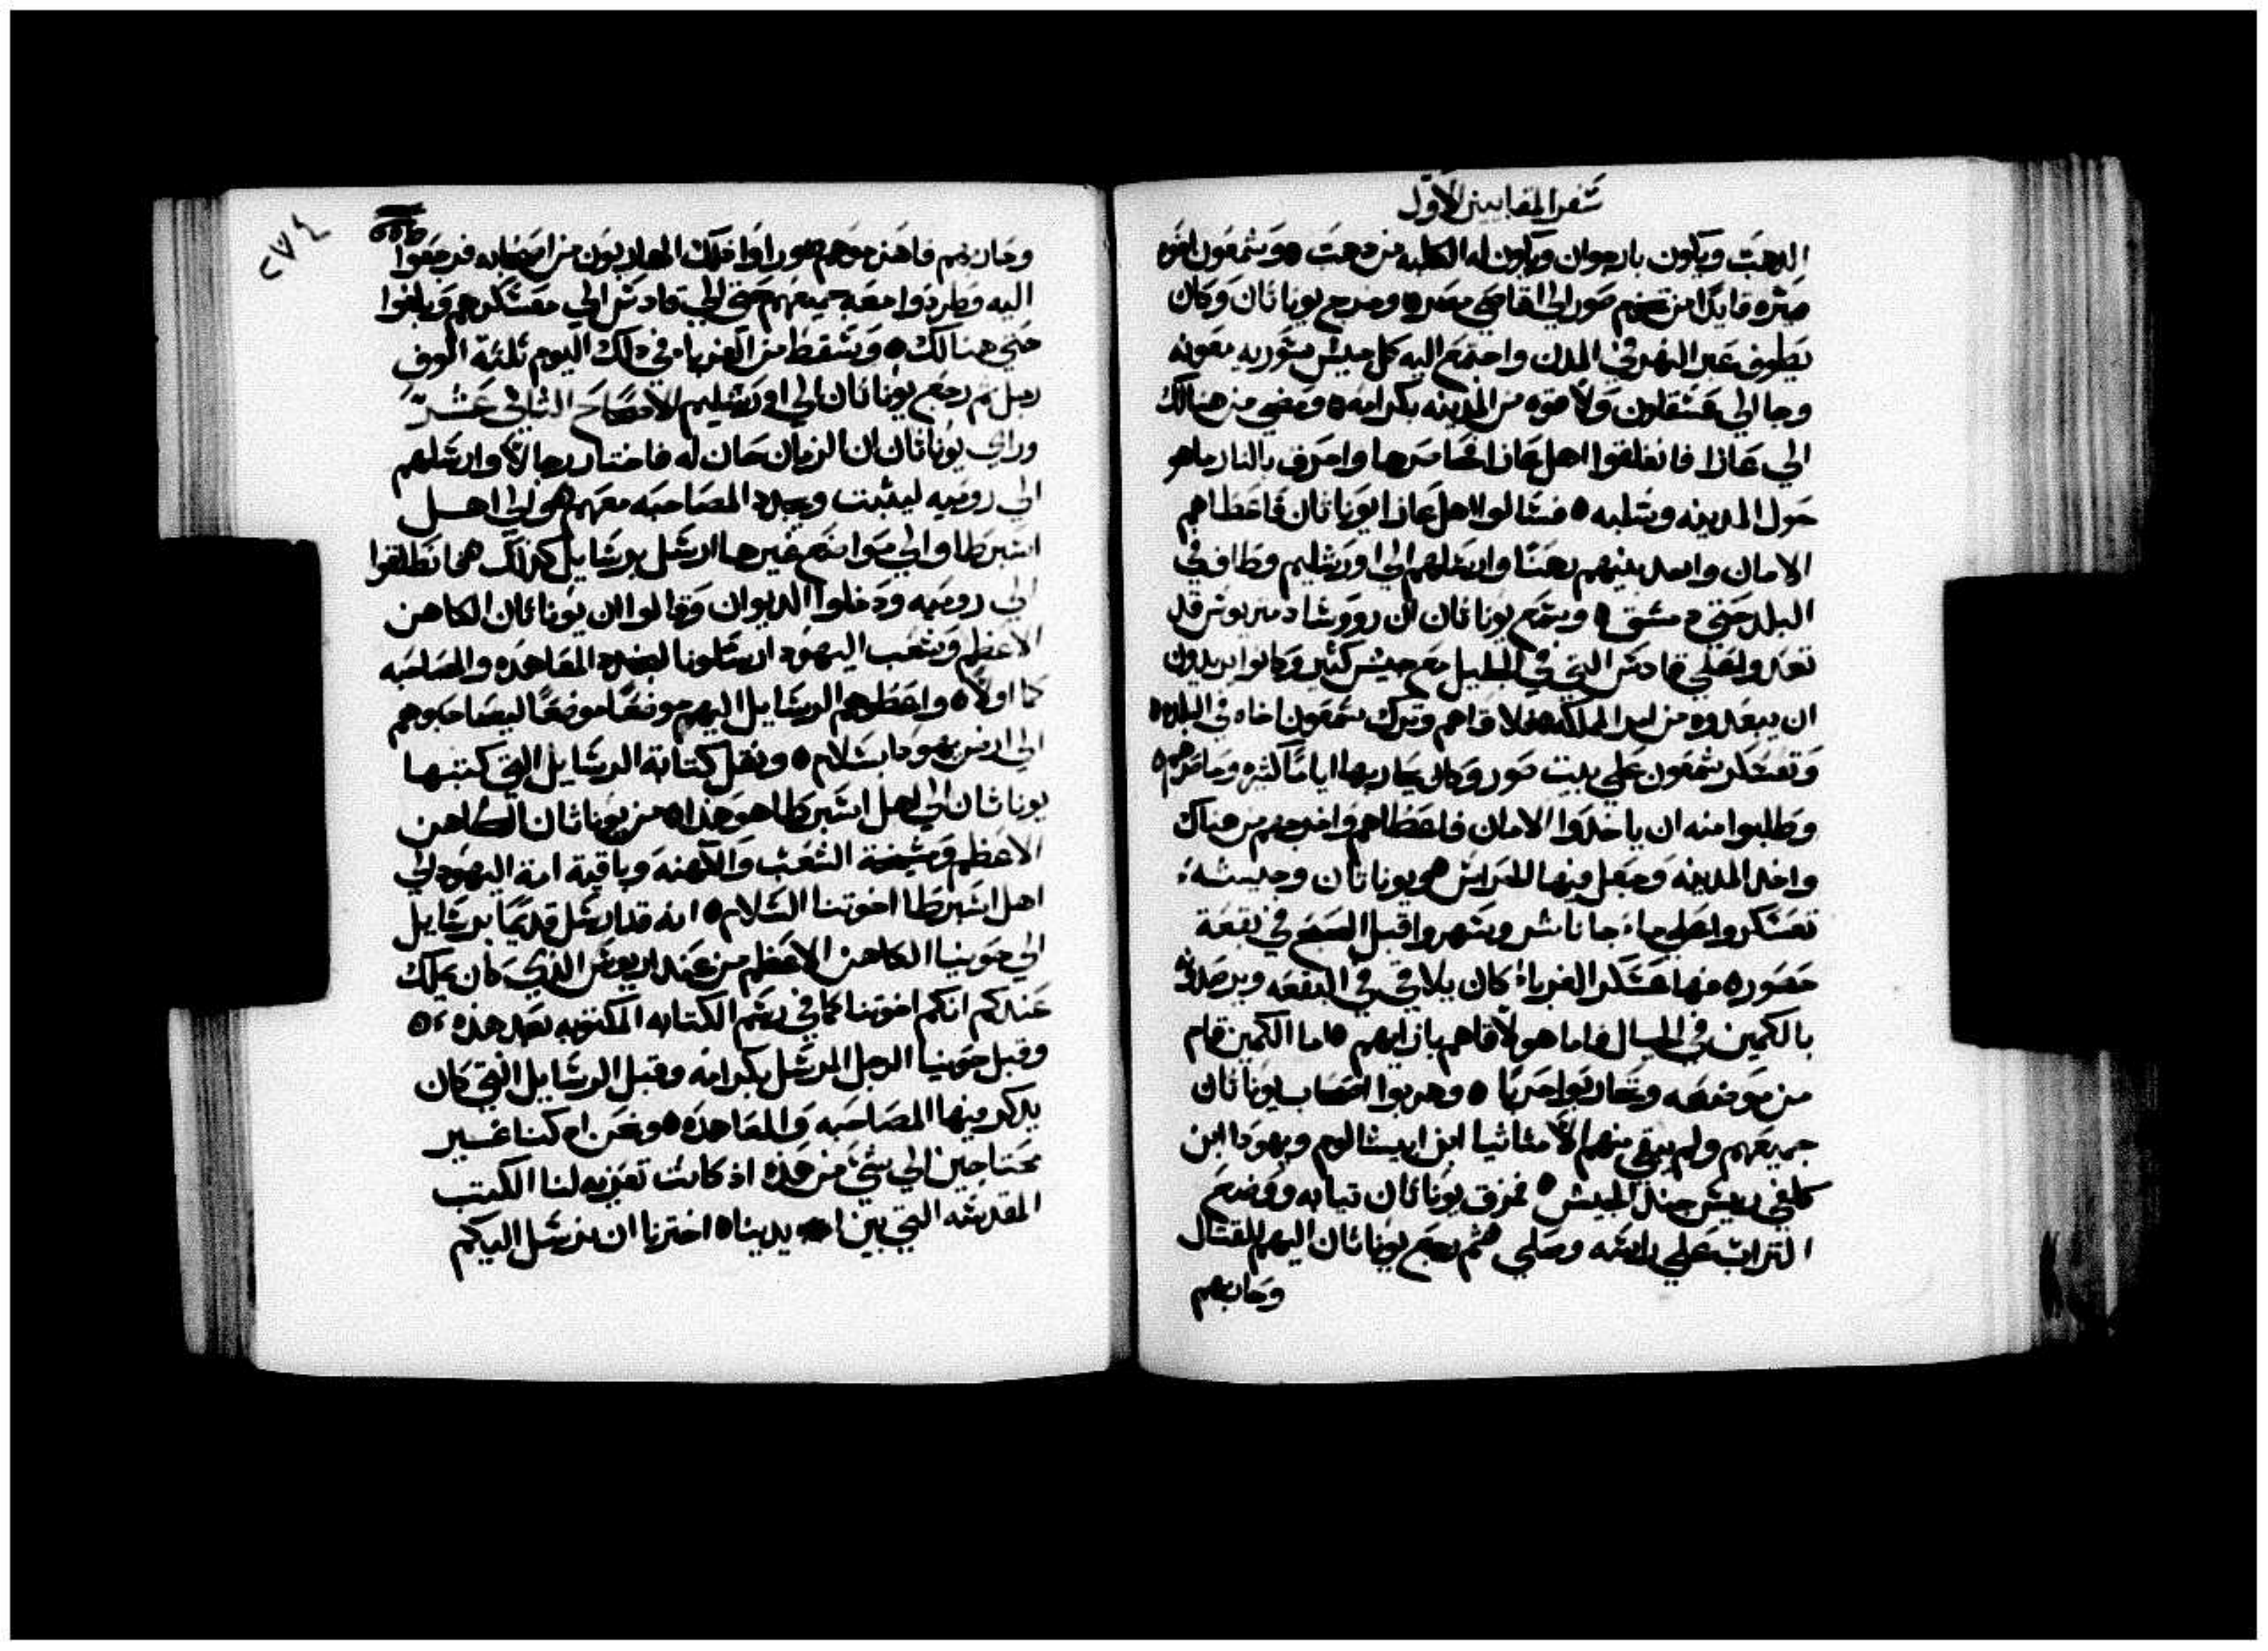 سفر المقابيين الاول
الدهب ويكون بارجوان ويكون له الكلبه من دهب ه وسمعون اخوه
صيره قايدا من تخم صور الي اقاصي مصر ه وخرج يوناثان وكان
يطوف عبر النهر في المدن واجتمع اليه كل جيش سوريه معونه
وجا الي عسقلون ولاقوه من المدينه بكرامه ه ومضي من هنالك
الي غازا فانغلقوا اهل غازا فحاصرها واحرق بالنار ماهو
حول المدينه وسلبه ه فسالوا اهل غازا يوناثان فاعطاهم
الامان واخد بنيهم رهنا وارسلهم الي اورشليم وطاف في
البلد حتي دمشق ه وسمع يوناثان ان رووسا دمتريوس قد
تعدوا علي قادس التي في الجليل مع جيش كثير وكانوا يريدون
ان يبعدوه من امر المملكه فلاقاهم وترك سمعون اخاه في البلده
وتعسكر سمعون علي بيت صور وكان يحاربها اياما كثيره وحاصرهم ه
وطلبوا منه ان ياخدوا الامان فاعطاهم واخرجهم من هناك
واخد المدينه وجعل فيها للحراس ه ويوناثان وجيشه
تعسكروا علي ماء جاناسر وسهروا قبل الصبح في بقعة
حصوره فهاعسكر الغرباء كان يلاقي في البقعه ويرصدوا
بالكمين في الجبال فاما هو لاقاهم بازايهم ه اما الكمين قام
من موضعه وتحاربوا حربا ه وهربوا اصحاب يوناثان
جميعهم ولم يبقي منهم الا متاثيا ابن ابيشالوم ويهودا ابن
كلفي رييس جند الجيش ه فمزق يوناثان تيابه ووضع
التراب علي راسه وصلي ه ثم رجع يوناثان اليهم للقتال
وحاربهم
٢٧٤
وحاربهم فاهزموهم ه وراوا ذلك الهاربون من اصحابه فرجعوا
اليه وطردوا معه جميعهم حتي الي قادس الي معسكرهم وبلغوا
حتي هنالك ه وسقط من الغرباء في دلك اليوم ثلثة الوف
رجل ثم رجع يوناثان الي اورشليم الاصحاح الثاني عشر
وراي يوناثان ان الزمان حان له فاختار رجالا وارسلهم
الي روميه ليثبت ويجدد المصاحبه معهم ه والي اهل
اسبرطا والي مواضع غيرها ارسل برسايل كذلك ه فانطلقوا
الي روميه ودخلوا الديوان وقالوا ان يوناثان الكاهن
الاعظم وشعب اليهود ارسلونا لنجدد المعاهده والمصاحبه
كما اولا ه واعطوهم الرسايل اليهم موضعا موضعا ليصاحبوهم
الي ارض يهودا بسلام ه ونقل كتابة الرسايل التي كتبها
يوناثان الي اهل اسبرطا هو هذا ه من يوناثان الكاهن
الاعظم ومشيخة الشعب والكهنه وباقية امة اليهود الي
اهل اسبرطا اخوتنا السلام ه انه قد ارسل قديما برسايل
الي حونيا الكاهن الاعظم من عند اريوس الذي كان يملك
عندكم انكم اخوتنا كما في رسم الكتابه المكتوبه بعد هذه ه
وقبل حونيا الرجل المرسل بكرامه وقبل الرسايل التي كان
يدكر فيها المصاحبه والمعاهده ه ونحن اد كنا غير
محتاجين الي شي من هذه اذ كانت تعزيه لنا الكتب
المقدسه التي بين يدينا ه اخترنا ان نرسل اليكم